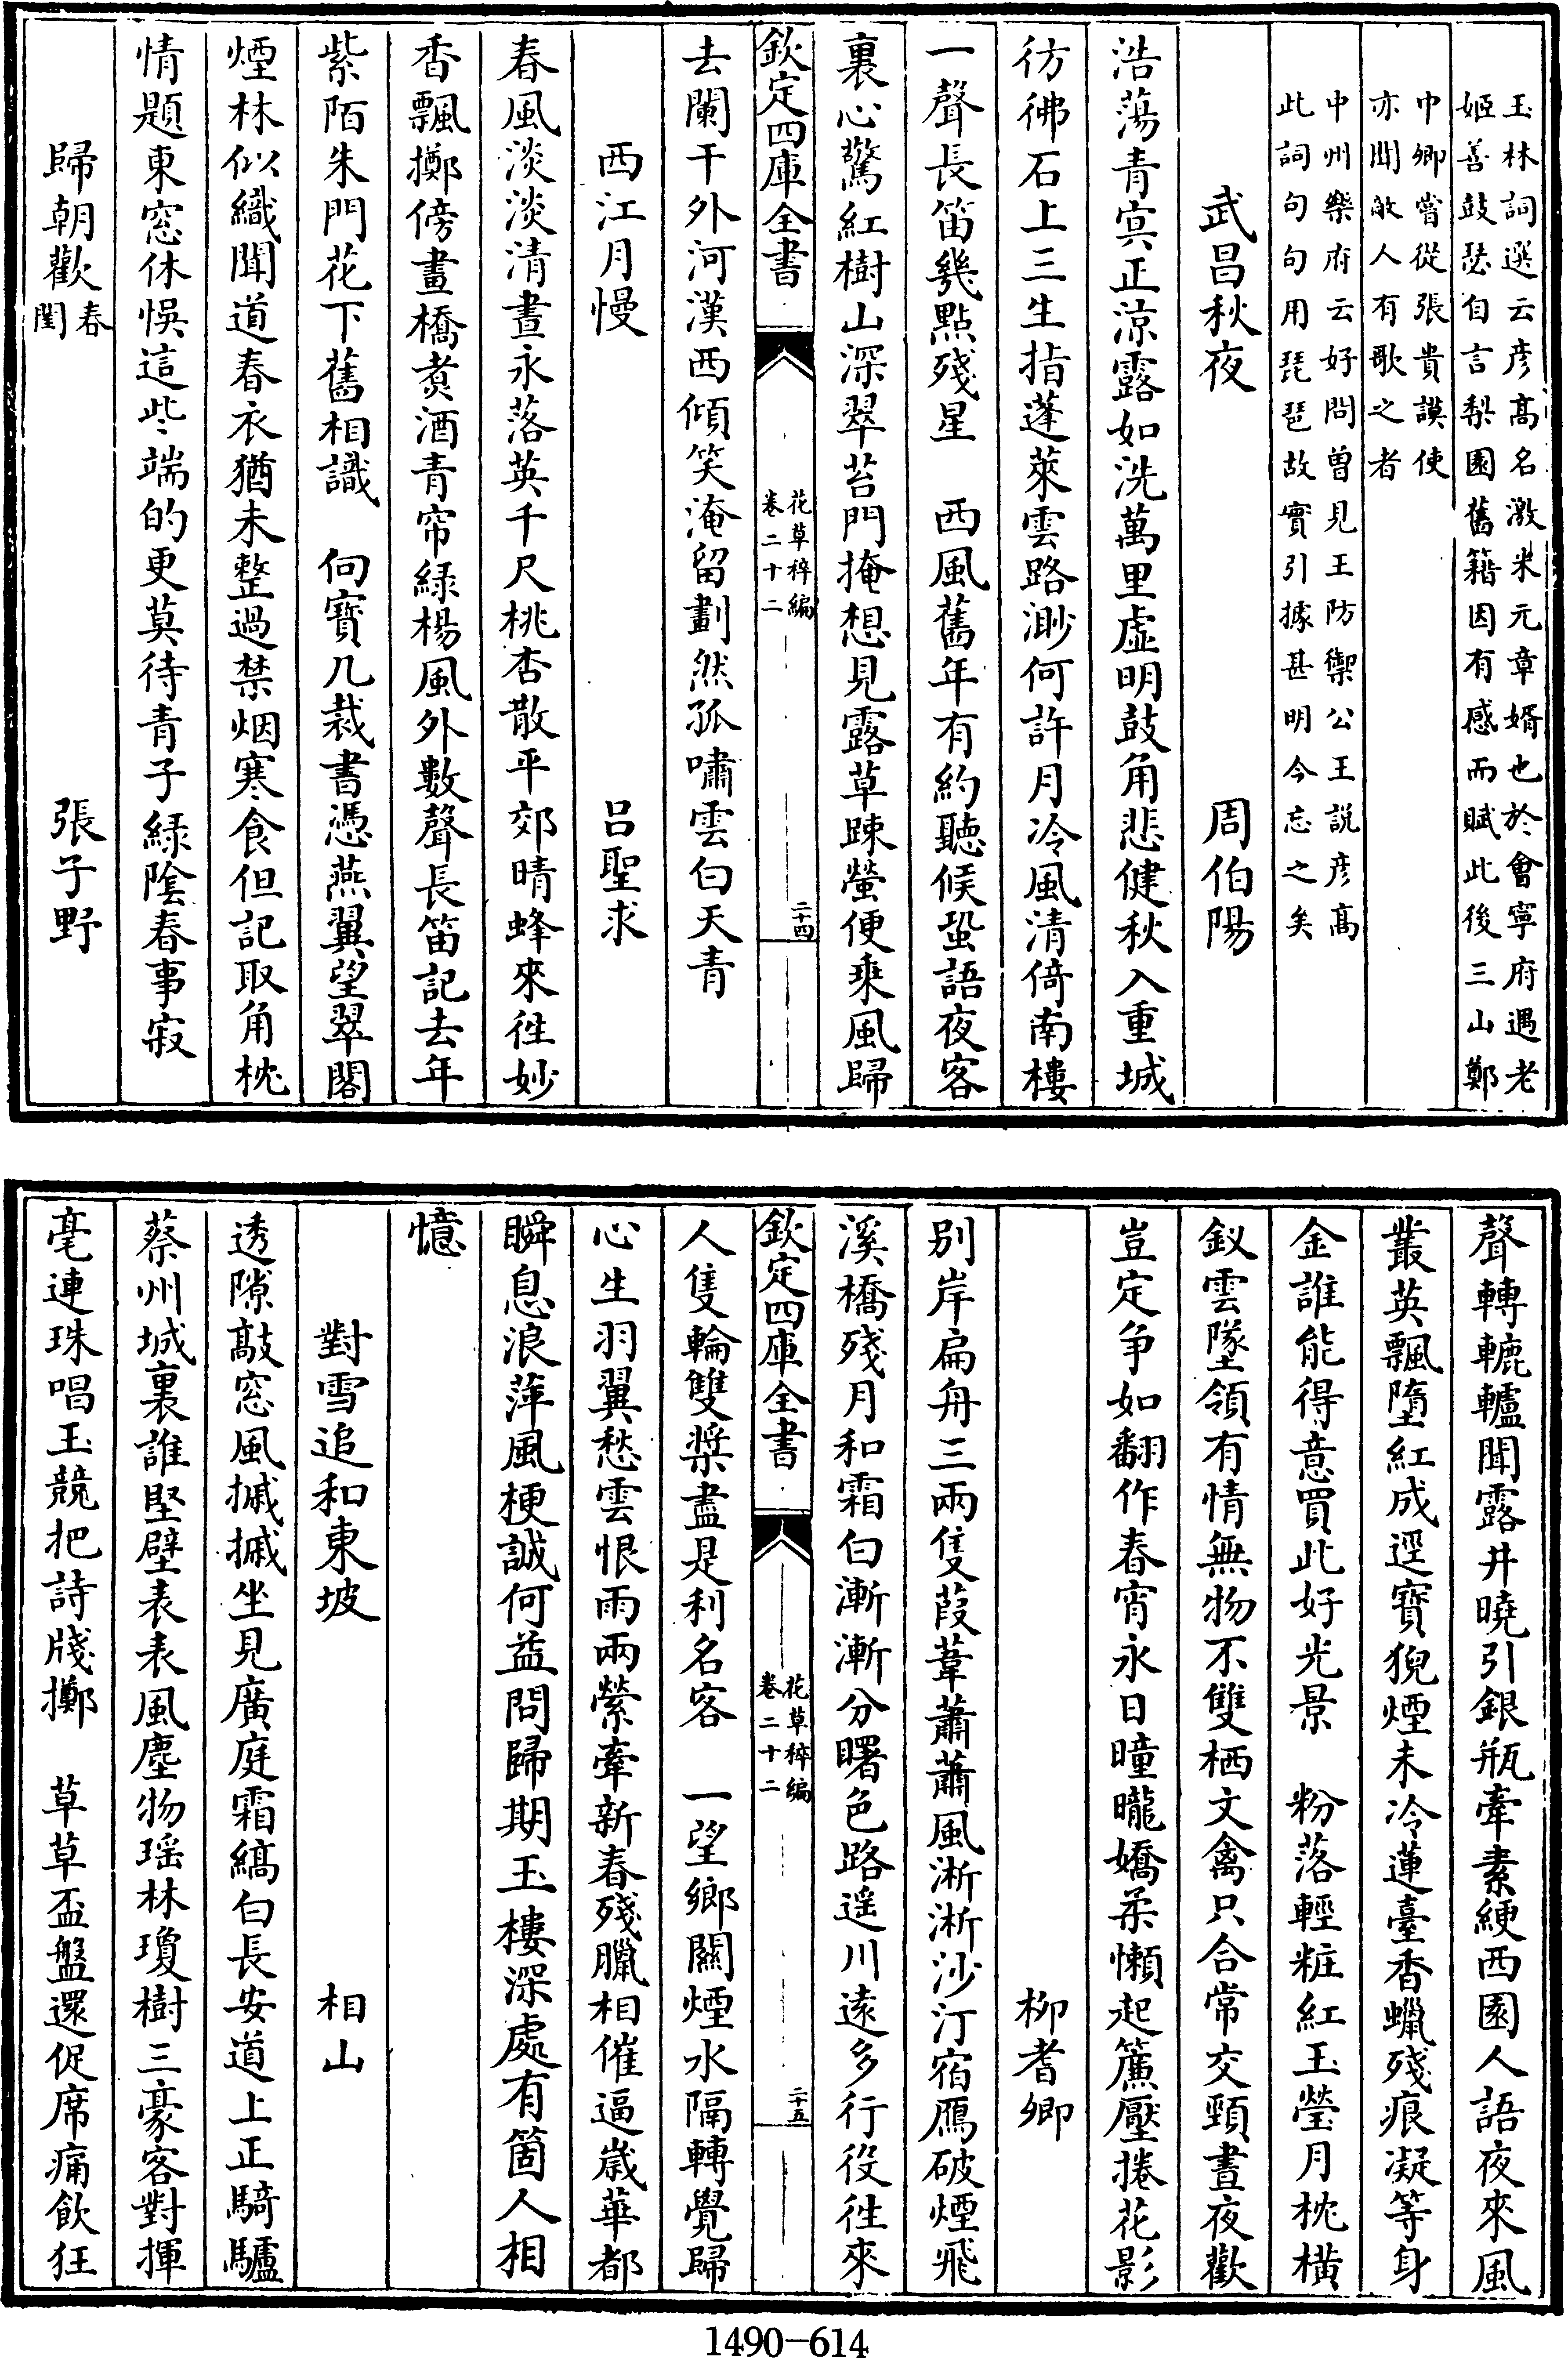 玉林詞選云彦髙名激米元章婿也於會寧府遇老
姬善鼓瑟自言梨園舊籍因有感而賦此後三山鄭
中卿嘗從張貴謨使
亦聞敵人有歌之者
中州樂府云好問曽見王防禦公王説彦髙
此詞句句用琵琶故實引據甚明今忘之矣
武昌秋夜 周伯陽
浩蕩青㝠正涼露如洗萬里虛明鼓角悲健秋入重城
彷彿石上三生指蓬萊雲路渺何許月冷風清倚南樓
一聲長笛幾點殘星 西風舊年有約聽候蛩語夜客
裏心驚紅樹山深翠苔門掩想見露草踈螢便乗風歸
欽定四庫全書 花草稡編 卷二十二 二十四
去闌干外河漢西傾笑淹留劃然孤嘯雲白天青
西江月慢 吕聖求
春風淡淡清晝永落英千尺桃杏散平郊晴蜂來徃妙
香飄擲傍畫橋煑酒青帘緑楊風外數聲長笛記去年
紫陌朱門花下舊相識 向寶几裁書憑燕翼望翠閣
煙林似織聞道春衣猶未整過禁烟寒食但記取角枕
情題東窓休悞這些端的更莫待青子緑陰春事寂
歸朝歡春閨 張子野
聲轉轆轤聞露井曉引銀瓶牽素綆西園人語夜來風
叢英飄墮紅成逕寶猊煙未冷蓮臺香蠟殘痕凝等身
金誰能得意買此好光景 粉落輕粧紅玉瑩月枕横
釵雲墜領有情無物不雙栖文禽只合常交頸晝夜歡
豈定争如翻作春宵永日曈曨嬌柔懶起簾壓捲花影
栁耆卿
别岸扁舟三兩隻葭葦蕭蕭風淅淅沙汀宿鴈破煙飛
溪橋殘月和霜白漸漸分曙色路遥川逺多行役徃來
欽定四庫全書 花草稡編 卷二十二 二十五
人隻輪雙槳盡是利名客 一望鄉關煙水隔轉覺歸
心生羽翼愁雲恨雨兩縈牽新春殘臘相催逼嵗華都
瞬息浪萍風梗誠何益問歸期玉樓深處有箇人相
憶
對雪追和東坡 相山
透隙敲窓風摵摵坐見廣庭霜縞白長安道上正騎驢
蔡州城裏誰堅壁表表風塵物瑶林瓊樹三豪客對揮
毫連珠唱玉競把詩牋擲 草草盃盤還促席痛飲狂
1490-614